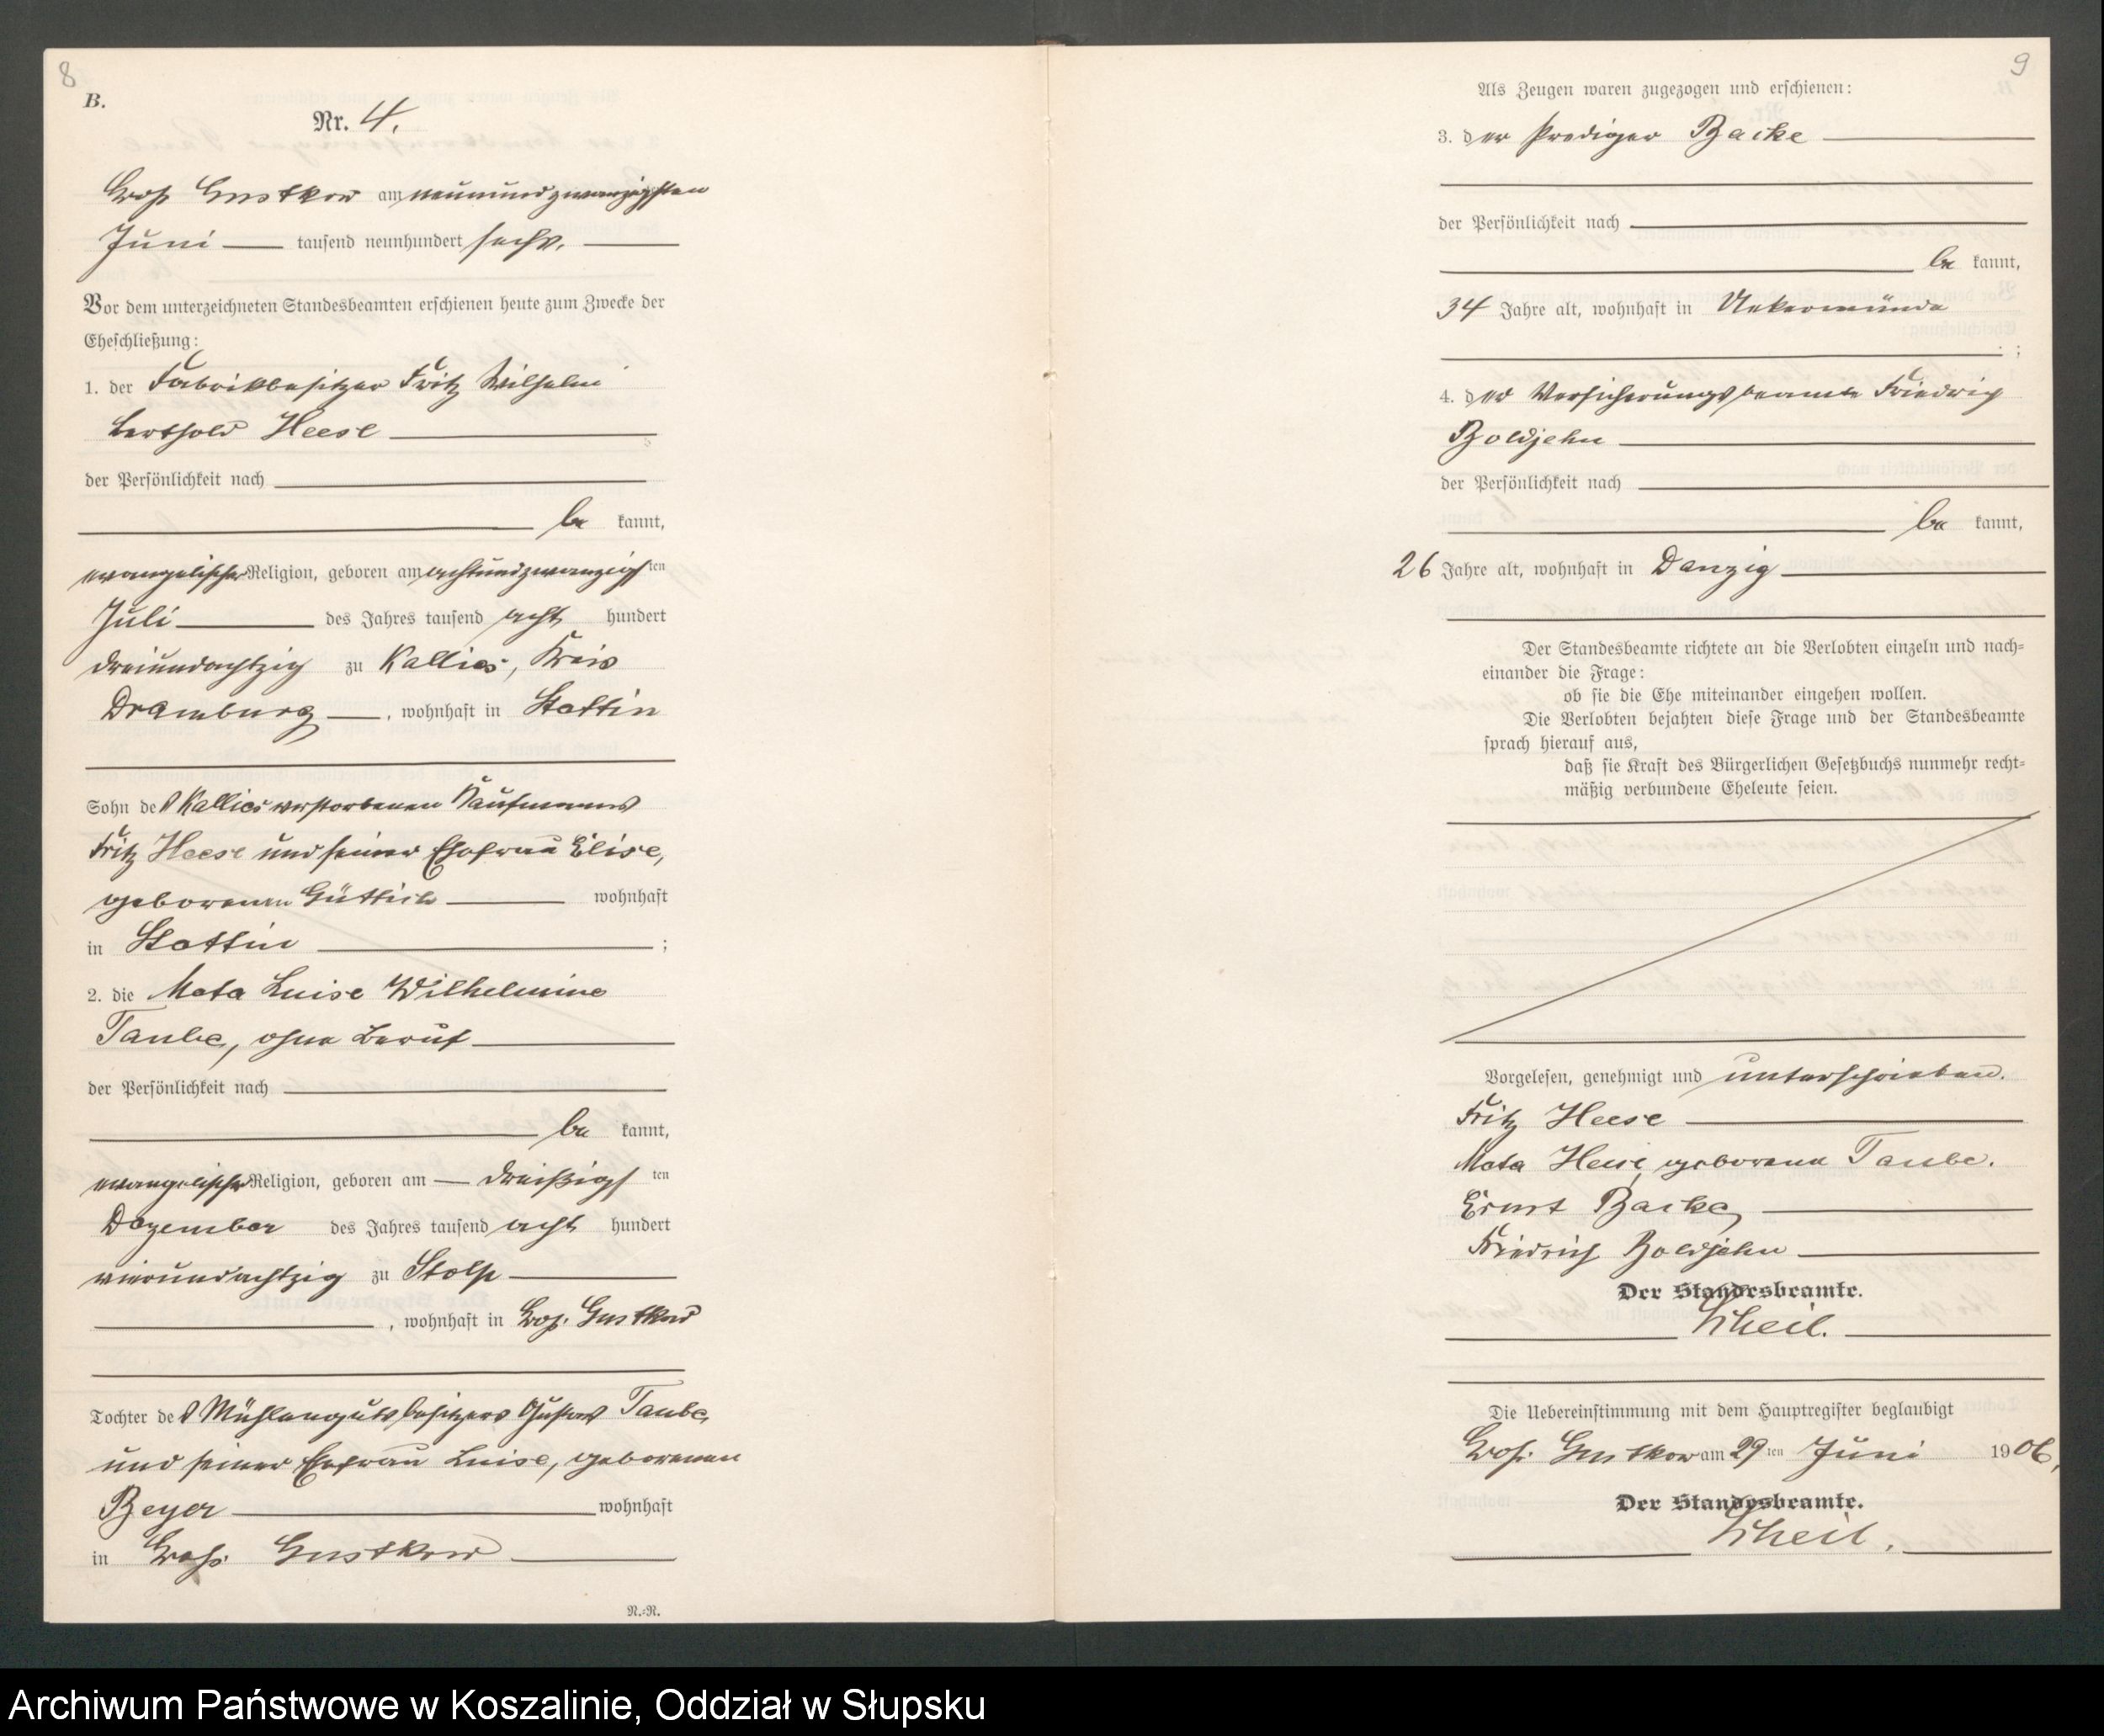 8
B.
Nr. 4.
Groß Gustkow am neunundzwanzigsten
Juni tausend neunhundert sechs.
Vor dem unterzeichneten Standesbeamten erschienen heute zum Zwecke der
Eheschließung:
1. der Fabrikbesitzer Fritz Wilhelm
Berthold Heese
der Persönlichkeit nach
be kannt,
evangelischer Religion, geboren am achtundzwanzigsten
Juli des Jahres tausend acht hundert
dreiundachtzig zu Kallies, Kreis
Dramburg, wohnhaft in Stettin
Sohn des Kallies verstorbenen Kaufmanns
Fritz Heese und seiner Ehefrau Elise,
geborenen Güttich wohnhaft
in Stettin ;
2. die Meta Luise Wilhelmine
Taube, ohne Beruf
der Persönlichkeit nach
be kannt,
evangelischer Religion, geboren am dreißigsten
Dezember des Jahres tausend acht hundert
vierundachtzig zu Stolp
, wohnhaft in Groß Gustkow
Tochter des Mühlengutsbesitzers Gustav Taube
und seiner Ehefrau Luise, geborenen
Beyer wohnhaft
in Groß Gustkow
N.-N.
9
Als Zeugen waren zugezogen und erschienen:
3. der Prediger Backe
der Persönlichkeit nach
be kannt,
34 Jahre alt, wohnhaft in Uekermünde
;
4. der Versicherungsbeamte Friedrich
Boldjehn
der Persönlichkeit nach
be kannt,
26 Jahre alt, wohnhaft in Danzig
Der Standesbeamte richtete an die Verlobten einzeln und nach-
einander die Frage:
ob sie die Ehe miteinander eingehen wollen.
Die Verlobten bejahten diese Frage und der Standesbeamte
sprach hierauf aus,
daß sie Kraft des Bürgerlichen Gesetzbuchs nunmehr recht-
mäßig verbundene Eheleute seien.
Vorgelesen, genehmigt und unterschrieben.
Fritz Heese
Meta Heese geborene Taube.
Ernst Backe
Friedrich Boldjehn
Der Standesbeamte.
Scheil.
Die Uebereinstimmung mit dem Hauptregister beglaubigt
Groß Gustkow am 29ten Juni 1906.
Der Standesbeamte.
Scheil.
Archiwum Państwowe w Koszalinie, Oddział w Słupsku